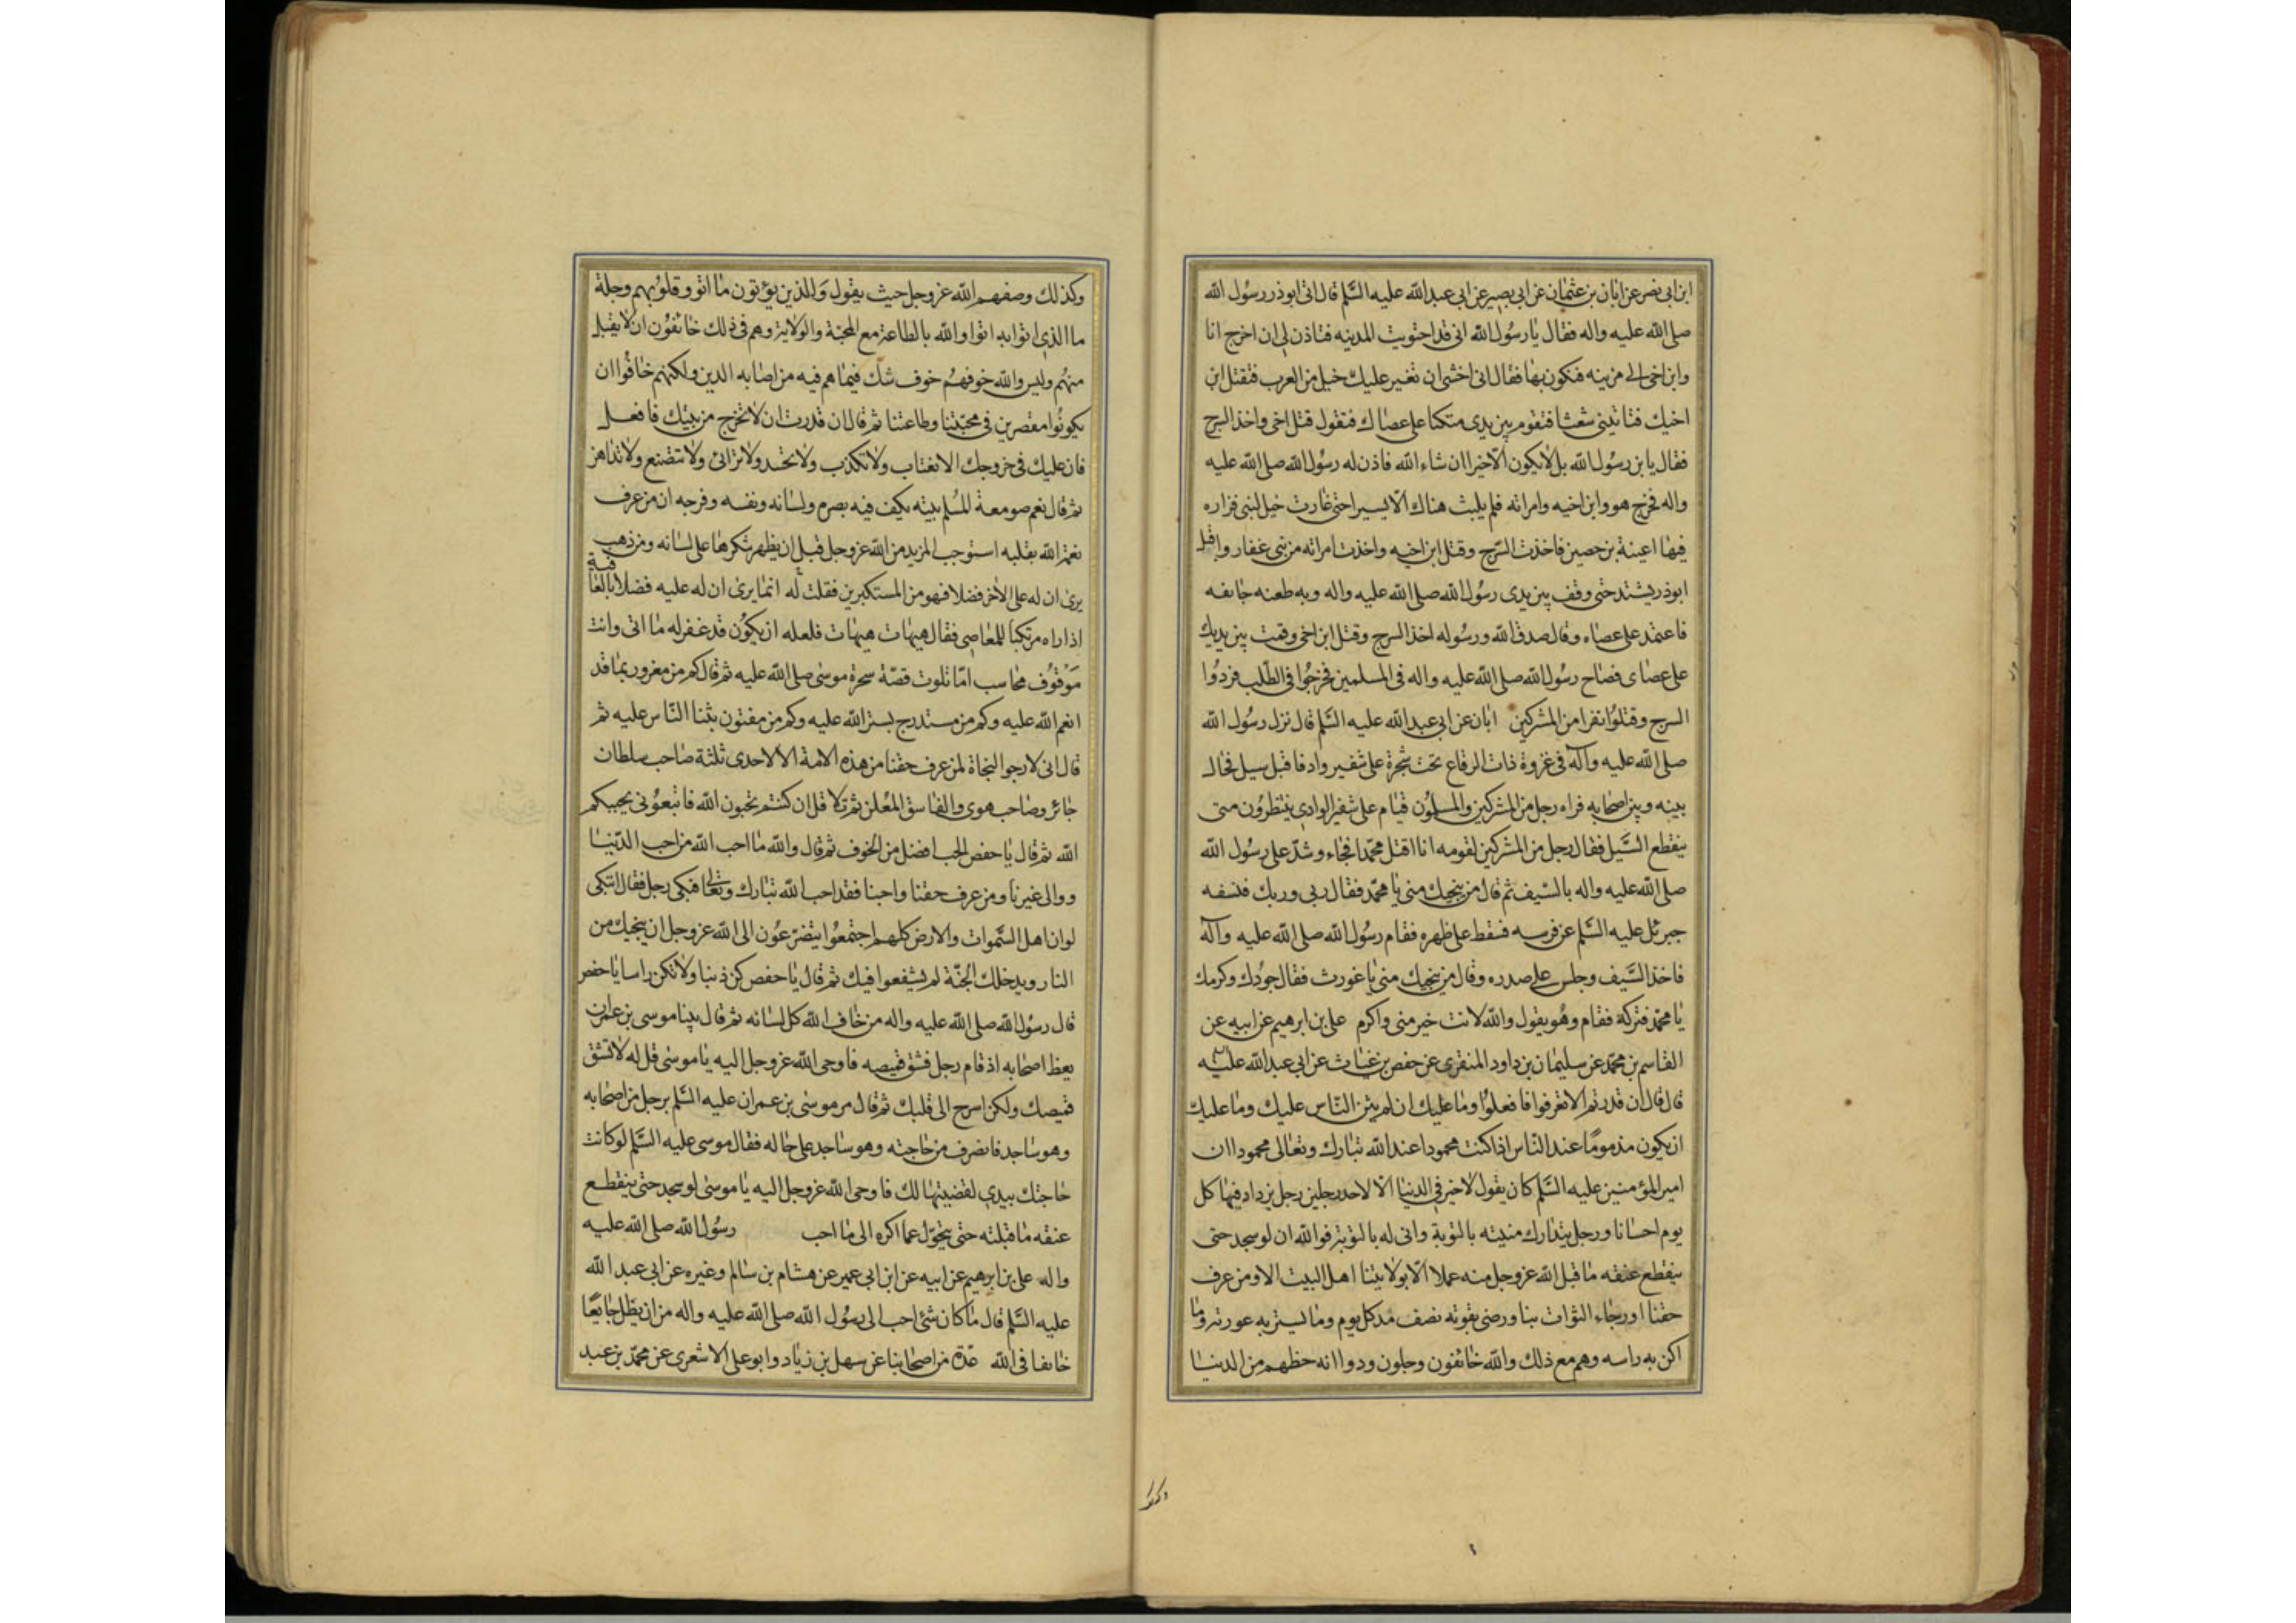 ابن ابى نصر عن ابان بن عثمان عن ابى بصير عن ابى عبد الله عليه السلم قال اتى ابوذر رسول الله
صلى الله عليه واله فقال يا رسول الله انى قد اجتويت المدينه فتاذن لى ان اخرج انا
وابن اخى الى مزينه فنكون بها فقال انى اخشى ان تغير عليك خيل من العرب فتقتل ابن
اخيك فتاتينى شعثا فتقوم بين يدى متكئا على عصاك فتقول قتل ابن اخى واخذ السرح
فقال يا بن رسول الله بل لا يكون الا خيرا ان شاء الله فاذن له رسول الله صلى الله عليه
واله فخرج هو وابن اخيه وامراته فلم يلبث هناك الا يسيرا حتى غارت خيل لبنى فزاره
فيها اعينة بن حصين فاخذت السرح وقتل ابن اخيه واخذت امراته من بنى غفار واقبل
ابوذر يشتد حتى وقف بين يدى رسول الله صلى الله عليه واله وبه طعنه جائفه
فاعتمد على عصاه وقال صدق الله ورسوله اخذ السرح وقتل ابن اخى وقمت بين يديك
على عصاى فصاح رسول الله صلى الله عليه واله فى المسلمين فخرجوا فى الطلب فردوا
السرح وقتلوا نفرا من المشركين ابان عن ابى عبد الله عليه السلم قال نزل رسول الله
صلى الله عليه وآله فى غزوة ذات الرقاع تحت شجرة على شفير واد فاقبل سيل فحال
بينه وبين اصحابه فراه رجل من المشركين والمسلمون قيام على شفير الوادى ينتظرون متى
ينقطع السيل فقال رجل من المشركين لقومه انا اقتل محمدا فجاء وشد على رسول الله
صلى الله عليه واله بالسيف ثم قال من ينجيك منى يا محمد فقال ربى وربك فنسفه
جبرئل عليه السلم عن فرسه فسقط على ظهره فقام رسول الله صلى الله عليه وآله
فاخذ السيف وجلس على صدره وقال من ينجيك منى يا غورث فقال جودك وكرمك
يا محمد فتركه فقام وهو يقول والله لانت خير منى واكرم على بن ابرهيم عن ابيه عن
القاسم بن محمد عن سليمان بن داود المنقرى عن حفص بن غياث عن ابى عبد الله عليه
قال قال ان قدرتم الا تعرفوا فافعلوا وما عليك ان لم يثن الناس عليك وما عليك
ان يكون مذموما عند الناس اذا كنت محمودا عند الله تبارك وتعالى محمودا ان
امير المؤمنين عليه السلم كان يقول لا خير فى الدنيا الا لاحد رجلين رجل يزداد فيها كل
يوم احسانا ورجل يتدارك منيته بالتوبة وانى له بالتوبة فوالله ان لو سجد حتى
ينقطع عنقه ما قبل الله عز وجل منه عملا الا بولايتنا اهل البيت الا ومن عرف
حقنا او رجاء الثوات بنا ورضى بقوته نصف مد كل يوم وما يستر به عورته وما
اكن به راسه وهم مع ذلك والله خائفون وجلون ودوا انه حظهم من الدنيا
وكذلك وصفهم الله عز وجل حيث يقول والذين يؤتون ما اتو وقلوبهم وجلة
ما الذى اتوا به اتوا والله بالطاعة مع المحبة والولاية وهم فى ذلك خائفون ان لا يقبل
منهم وليس والله خوفهم خوف شك فيما هم فيه من اصابه الدين ولكنهم خافوا ان
يكونوا مقصرين فى محبتنا وطاعتنا ثم قال ان قدرت ان لا تخرج من بيتك فافعل
فان عليك فى خروجك الا تغتاب ولا تكذب ولا تحسد ولا ترائى ولا تتصنع ولا تداهن
ثم قال نعم صومعة المسلم بيته يكف فيه بصره ولسانه ونفسه وفرجه ان من عرف
نعمة الله بقلبه استوجب المزيد من الله عز وجل قبل ان يظهر شكرها على لسانه ومن ذهب
يرى ان له على الاخر فضلا فهو من المستكبرين فقلت له انما يرى ان له عليه فضلا بالعافية
اذا راه مرتكبا للمعاصى فقال هيهات هيهات فلعله ان يكون قد غفر له ما اتى وانت
موقوف محاسب اما تلوت قصة سحرة موسى صلى الله عليه ثم قال كم من مغرور بما قد
انعم الله عليه وكم من مستدرج بستر الله عليه وكم من مفتون بثنا الناس عليه ثم
قال انى لارجوا النجاة لمن عرف حقنا من هذه الامة الا لاحدى ثلثة صاحب سلطان
جائر وصاحب هوى والفاسق المعلن ثم تلا قل ان كنتم تحبون الله فاتبعونى يحببكم
الله ثم قال يا حفص الحب افضل من الخوف ثم قال والله ما احب الله من احب الدنيا
ووالى غيرنا ومن عرف حقنا واحبنا فقد احب الله تبارك وتعالى فبكى رجل فقال اتبكى
لو ان اهل السموات والارض كلهم اجتمعوا يتضرعون الى الله عز وجل ان ينجيك من
النار ويدخلك الجنة لم يشفعوا فيك ثم قال يا حفص كن ذنبا ولا تكن راسا يا حفص
قال رسول الله صلى الله عليه واله من خاف الله كل لسانه ثم قال بينا موسى بن عمرن
يعظ اصحابه اذ قام رجل فشق قميصه فاوحى الله عز وجل اليه يا موسى قل له لا تشق
قميصك ولكن اسرح الى قلبك ثم قال مر موسى بن عمران عليه السلم برجل من اصحابه
وهو ساجد فانصرف من حاجته وهو ساجد على حاله فقال موسى عليه السلم لو كانت
حاجتك بيدى لقضيتها لك فاوحى الله عز وجل اليه يا موسى لو سجد حتى ينقطع
عنقه ما قبلته حتى يتحول عما اكره الى ما احب رسول الله صلى الله عليه
واله على بن ابرهيم عن ابيه عن ابن ابى عمير عن هشام بن سالم وغيره عن ابى عبد الله
عليه السلم قال ما كان شئ احب الى رسول الله صلى الله عليه واله من ان يظل جايعا
خائفا فى الله عدة من اصحابنا عن سهل بن زياد وابو على الاشعرى عن محمد بن عبد
وكذلك